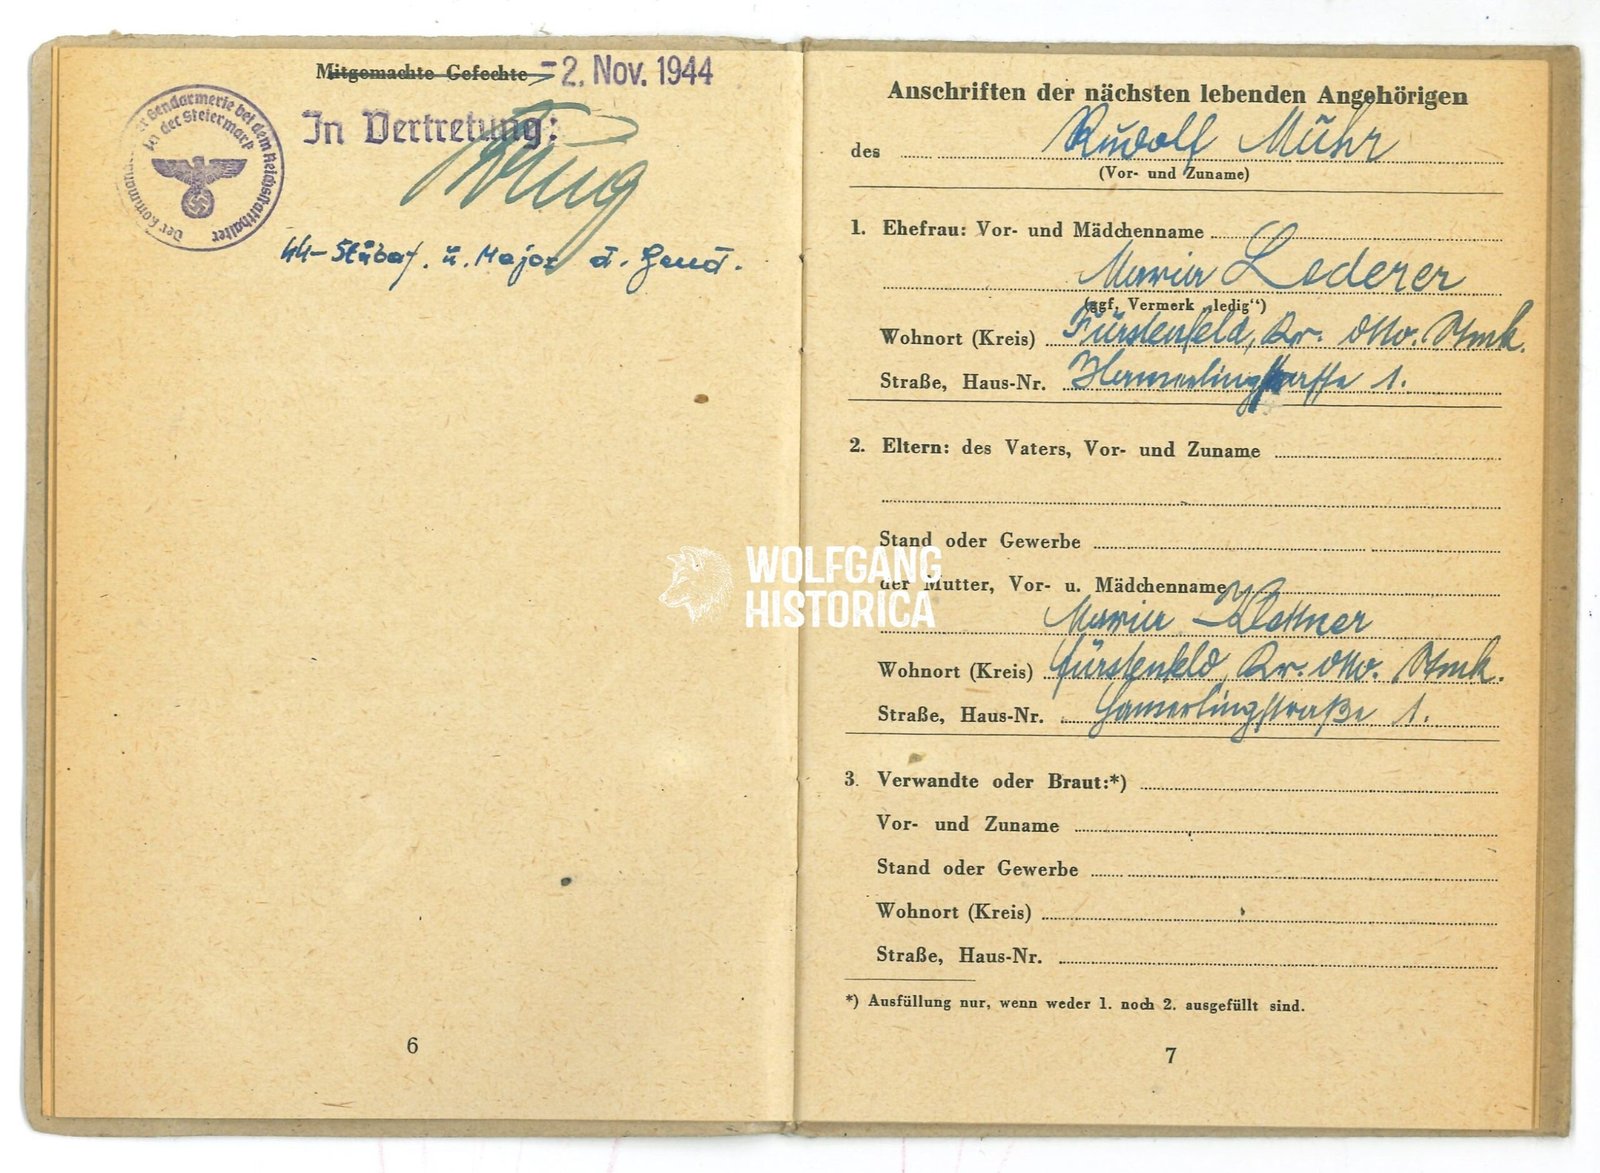 Mitgemachte Gefechte - 2. Nov. 1944
Der Kommandeur der Gendarmerie bei dem Reichsstatthalter
in der Steiermark
In Vertretung:
SS-Stubaf. u. Major d. Gend.
6
Anschriften der nächsten lebenden Angehörigen
des Rudolf Mühr
(Vor- und Zuname)
1. Ehefrau: Vor- und Mädchenname
Maria Lederer
(ggf. Vermerk „ledig“)
Wohnort (Kreis) Fürstenfeld, Kr. dtto. Stmk.
Straße, Haus-Nr. Hamerlingstrasse 1.
2. Eltern: des Vaters, Vor- und Zuname
Stand oder Gewerbe
der Mutter, Vor- u. Mädchenname
Maria
Wohnort (Kreis) Fürstenfeld, Kr. dtto. Stmk.
Straße, Haus-Nr. Hamerlingstraße 1.
3. Verwandte oder Braut:*)
Vor- und Zuname
Stand oder Gewerbe
Wohnort (Kreis)
Straße, Haus-Nr.
*) Ausfüllung nur, wenn weder 1. noch 2. ausgefüllt sind.
7
WOLFGANG
HISTORICA